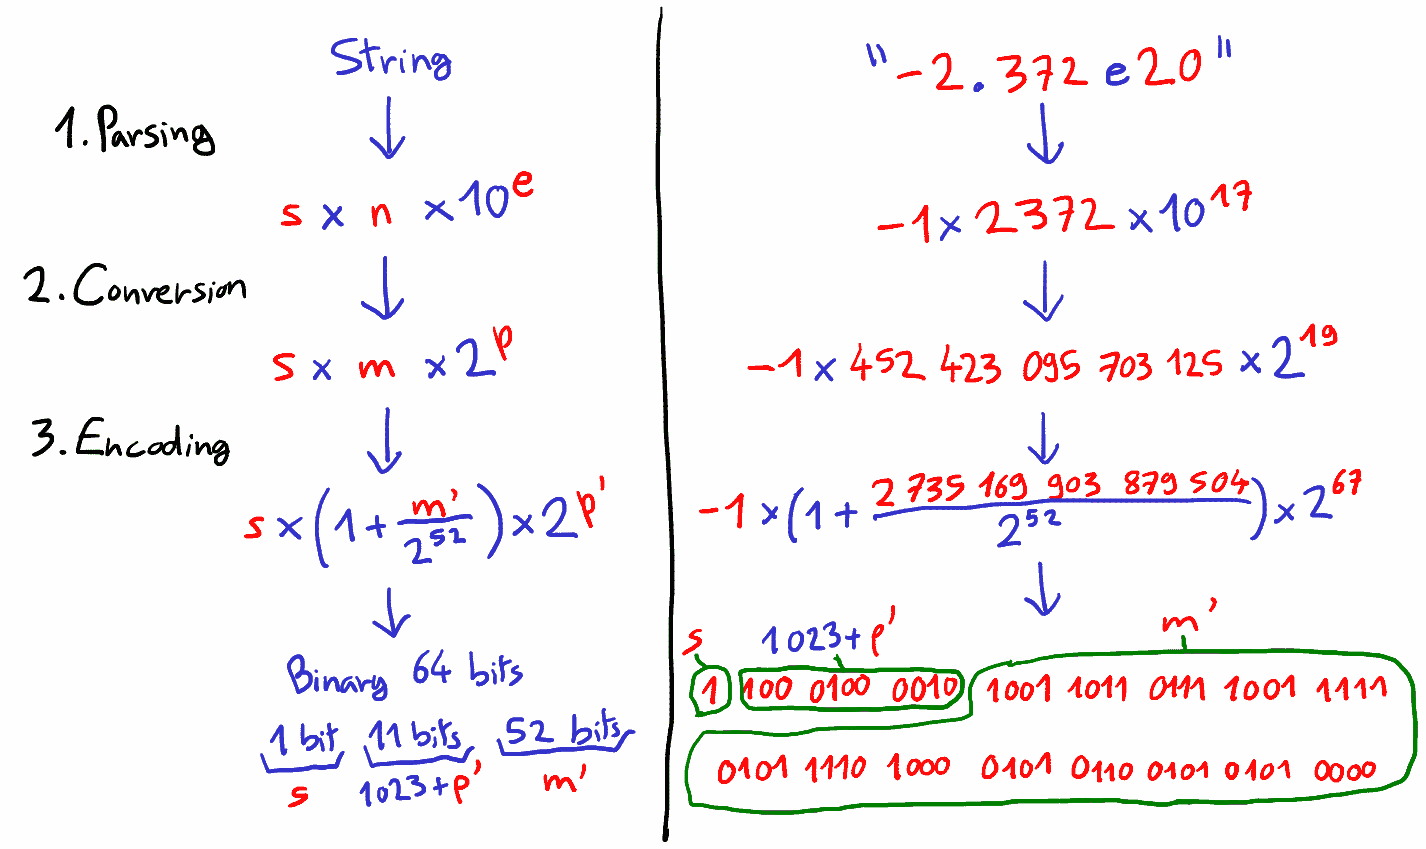 String
1. Parsing
s × n × 10^e
2. Conversion
s × m × 2^p
3. Encoding
s × (1 + m'/2^52) × 2^p'
Binary 64 bits
1 bit 11 bits, 52 bits
s 1023+p' m'
"-2.372 e20"
-1 × 2372 × 10^17
-1 × 452 423 095 703 125 × 2^19
-1 × (1 + 2 735 169 903 879 504/2^52) × 2^67
s 1023+p' m'
1 100 0100 0010 1001 1011 0111 1001 1111
0101 1110 1000 0101 0110 0101 0101 0000